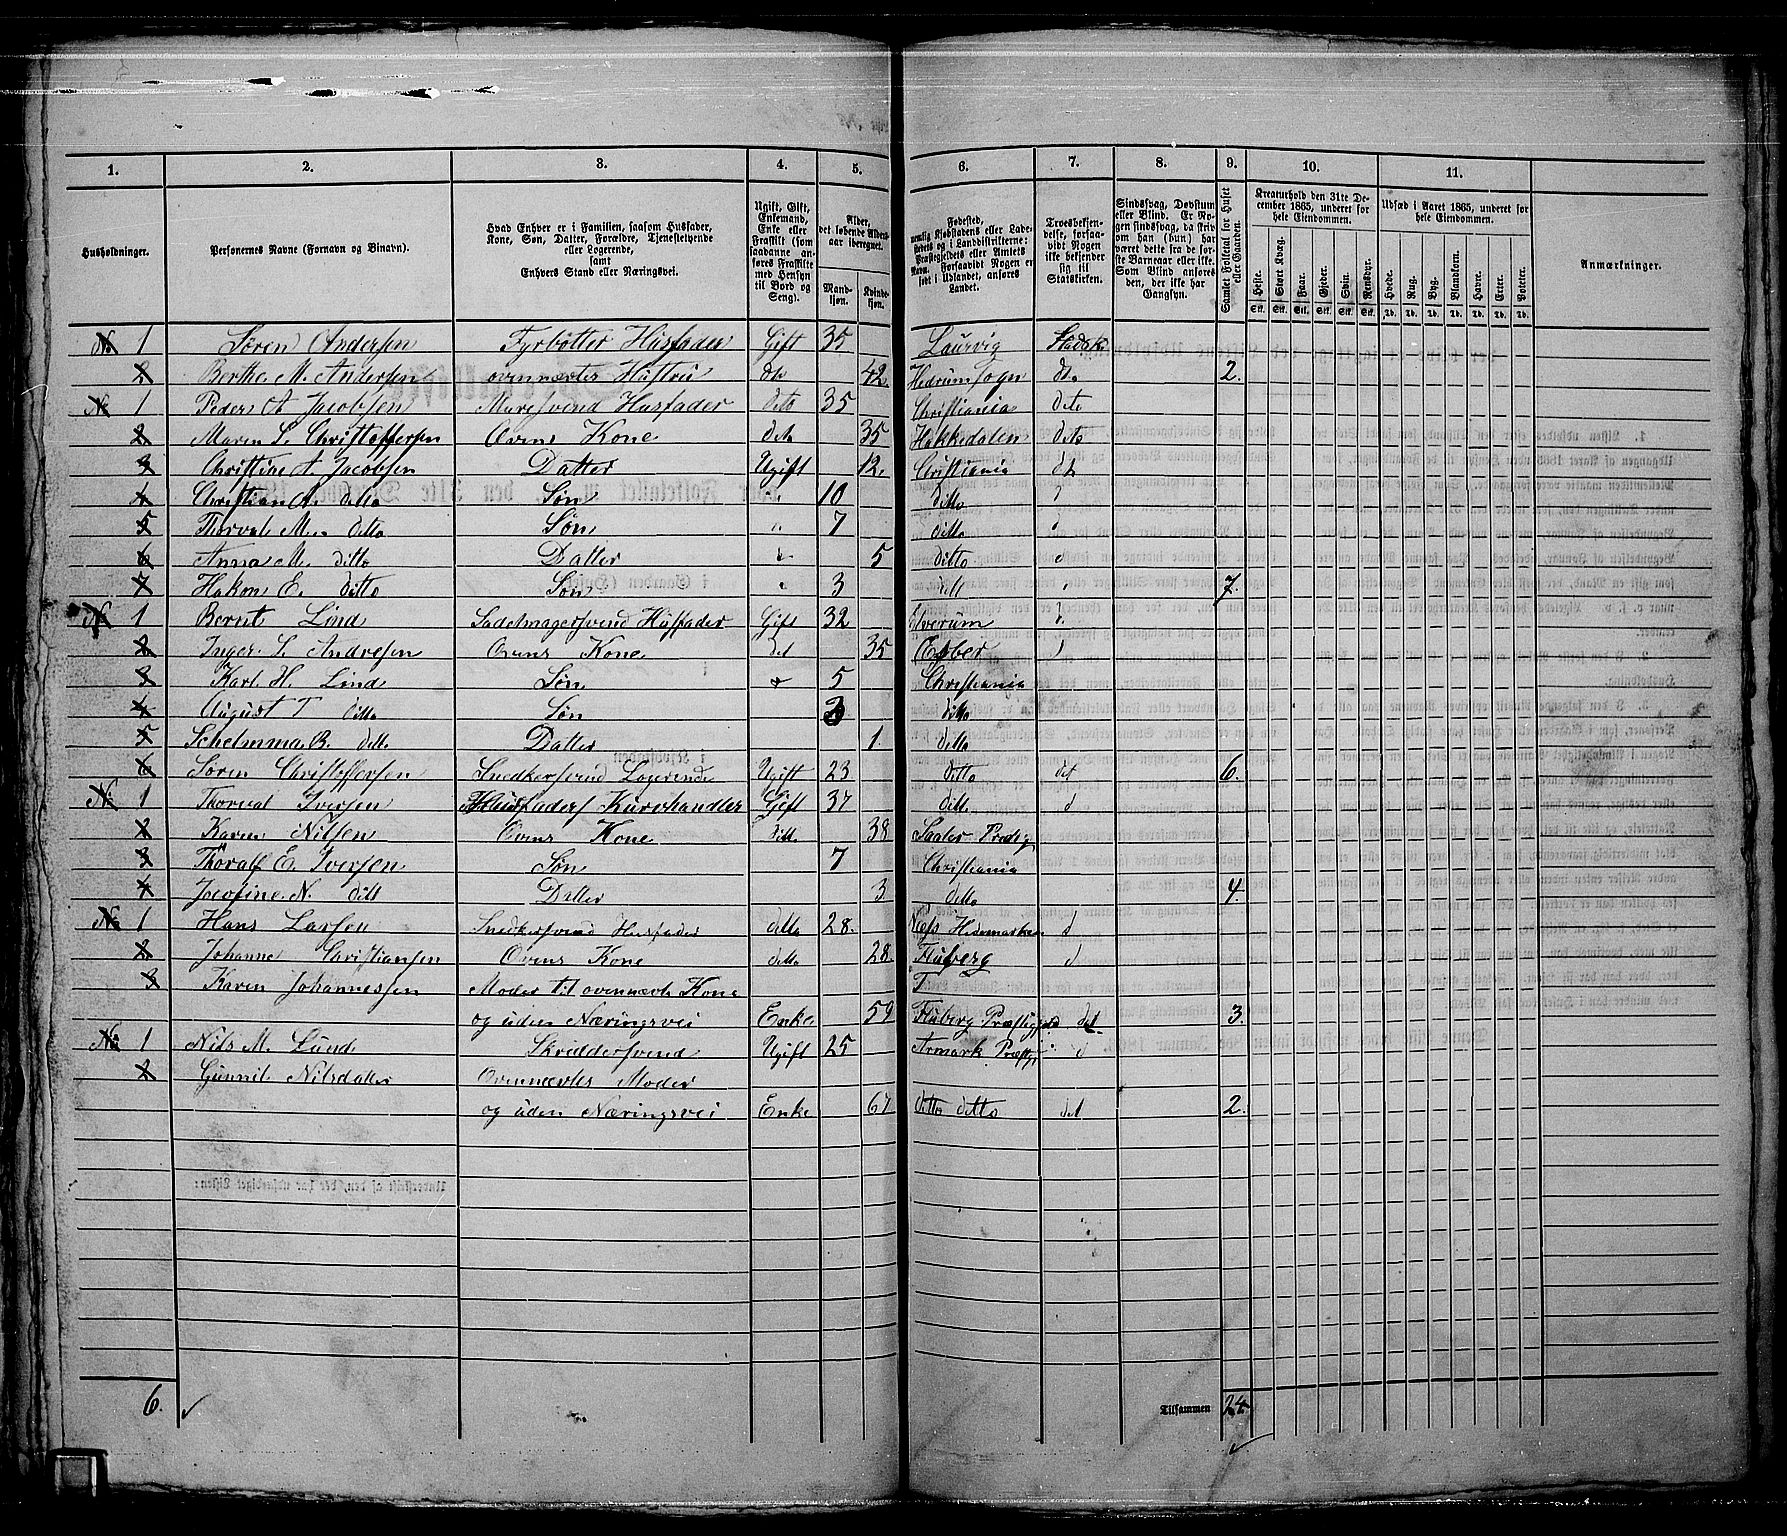 1. 2. 3. 4. 5. 6. 7. 8. 9. 10. 11.
Husholdninger.
Personernes Navne (Fornavn og Binavn).
Hvad Enhver er i Familien, saasom Husfader, Kone, Søn, Datter, Forældre, Tjenestetyende eller Logerende, samt Enhvers Stand eller Næringsvei.
Ugift, Gift, Enkemand, Enke eller Fraskilt (som saadanne anføres Fraskilte med Hensyn til Bord og Seng).
Alder, det løbende Aldersaar iberegnet.
Mandkjøn. Kvindekjøn.
Fødested, nemlig Kjøbstadens eller Ladestedets og i Landdistrikterne: Præstegjeldets eller Amtets Navn. Forsaavidt Nogen er født i Udlandet, anføres Landet.
Troesbekjendelse, forsaavidt Nogen ikke bekjender sig til Statskirken.
Sindssvag, Døvstum eller Blind. Er Nogen sindssvag, da skriv om han (hun) har været dette fra de første Barneaar eller ikke. Som Blind anføres den, der ikke har Gangsyn.
Samlet Folketal for Huset eller Gaarden.
Kreaturhold den 31te December 1865, underet for hele Eiendommen.
Heste. Stort Kvæg. Faar. Gjeder. Svin. Rensdyr.
Stk. Stk. Stk. Stk. Stk. Stk.
Udsæd i Aaret 1865, underet for hele Eiendommen.
Hvede. Rug. Byg. Blandkorn. Havre. Erter. Poteter.
Td. Td. Td. Td. Td. Td. Td.
Anmærkninger.
No 1 Søren Andersen Fyrbøtter Husfader Gift 35 Laurvig Stadsk
2 Berthe M. Andersen ovennævtes Hustru do 42 Hedrum Sogn do 2.
No 1 Peder A Jacobsen Muresvend Husfader dito 35 Christiania dito
2 Maren L. Christoffersen Ovens Kone dito 35 Hakkedalen dito
3 Christine A. Jacobsen Datter Ugift 12. Christiania do
4 Christian A. ditto Søn " 10 ditto
5 Thorval M. ditto Søn " 7 ditto
6 Anna M. ditto Datter 5 ditto
7 Hakon E. ditto Søn " 3 ditt 7.
No 1 Bernt Lind Sadelmagersvend Husfader Gift 32 Elverum
2 Inger L. Andresen Ovens Kone det 35
3 Karl H. Lind Søn 5 Christiania
4 August T ditto Søn ditto
5 B. ditto Datter 1. ditto
6 Søren Christoffersen Snedkersvend Logerende Ugift 23 ditto det 6.
No 1 Thorval Iversen Husfader Kurvhandler Gift 37 ditto d
2 Karen Nilsen Ovens Kone ditto 38
3 Thoralf E. Iversen Søn 7 Christiania
4 Josefine N. ditt Datter 3. ditto 4.
No 1 Hans Larsen Snedkersvend Husfader ditto 28. Næss Hedemarken d
2 Johanne Christiansen Ovens Kone ditto 28 Fluberg d
3 Karen Johannessen Moder til ovennævte Kone F
og uden Næringsvei Enke 59 Fluberg Præstegjeld det 3.
No 1 Nils M. Lund Skriddersvend Ugift 25 d
2 Gunnil Nilsdatter Ovennævtes Moder
og uden Næringsvei Enke 67 ditto ditto det 2.
6.
Tilsammen 24